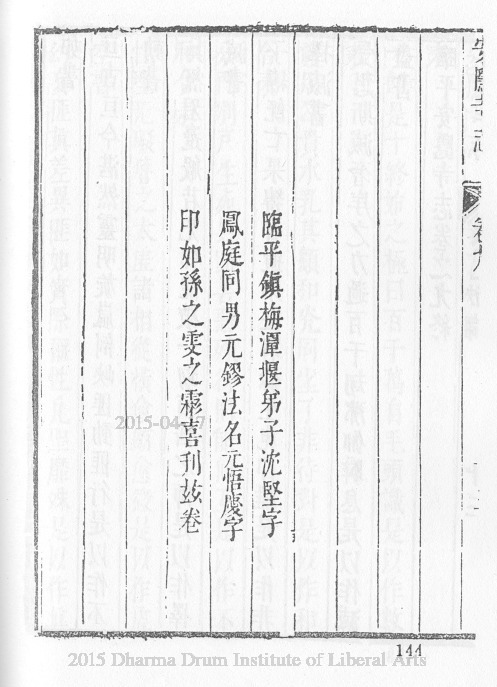 臨平鎮梅潭堰弟子沈堅字
鳳庭同男元鏐法名元悟慶字
印如孫之雯之霖喜刊玆卷
144
2015-04-17
2015 Dharma Drum Institute of Liberal Arts